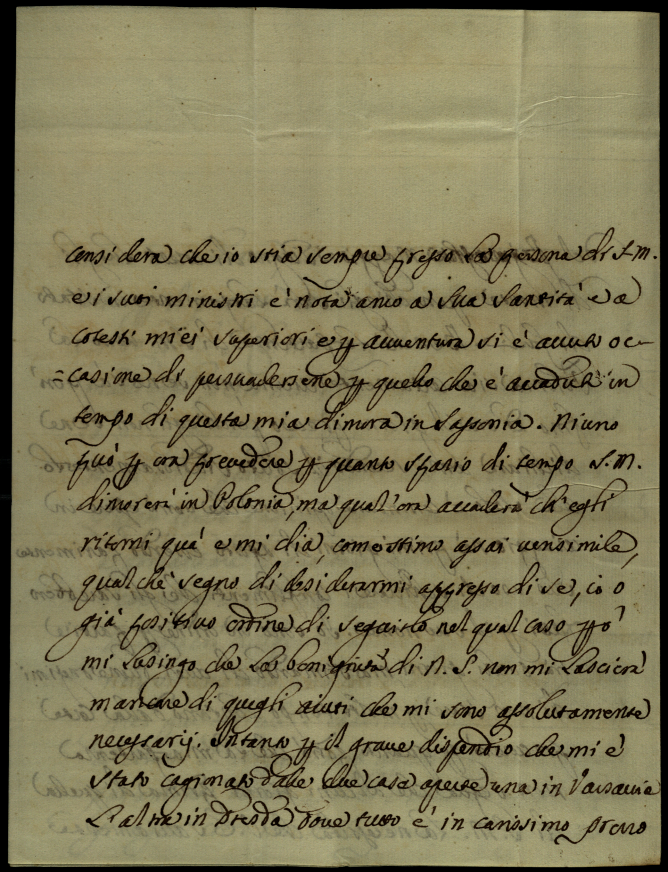 considera che io stia sempre presso la persona di S. M.
e i suoi ministri è nota anco a Sua Santità e a
cotesti miei superiori e p avventura si è avuto oc-
=casione di persuadersene p quello che è accaduto in
tempo di questa mia dimora in Sassonia. Niuno
può p ora prevedere p quanto spatio di tempo S. M.
dimorerà in Polonia, ma qual'ora accaderà ch'egli
ritorni quà e mi dia, come stimo assai verisimile,
qualche segno di desiderarmi appresso di se, io ò
già positivo ordine di seguirlo nel qual caso però
mi lusingo che la benignità di N. S. non mi lascierà
mancare di quegli aiuti che mi sono assolutamente
necessarij. Intanto p il grave dispendio che mi è
stato cagionato dalle due case aperte una in Varsavia
l'altra in Dresda dove tutto è in carissimo prezzo